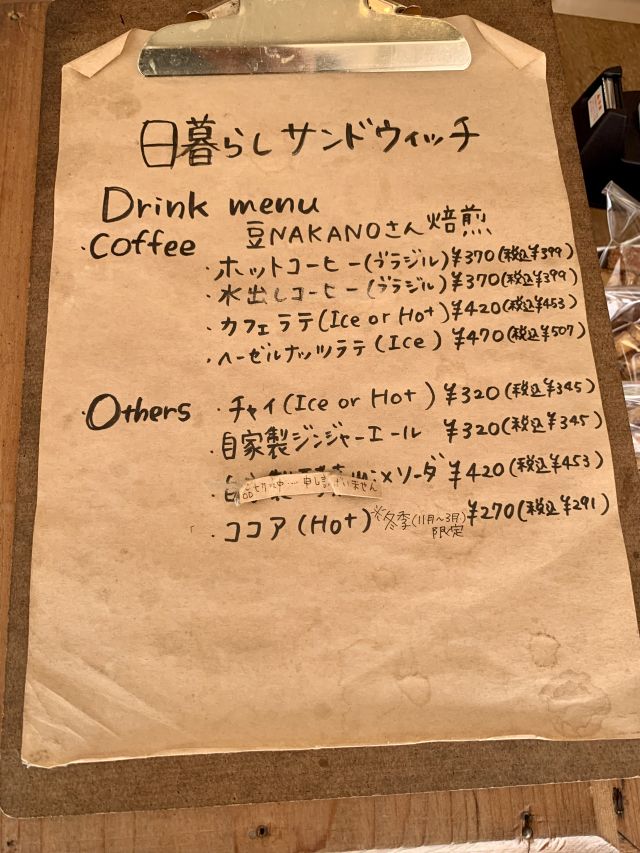 日暮らしサンドウィッチ
Drink menu
・Coffee 豆NAKANOさん焙煎
・ホットコーヒー(ブラジル)¥370(税込¥399)
・水出しコーヒー(ブラジル)¥370(税込¥399)
・カフェラテ(Ice or Hot)¥420(税込¥453)
・ヘーゼルナッツラテ(Ice)¥470(税込¥507)
・Others ・チャイ(Ice or Hot)¥320(税込¥345)
・自家製ジンジャーエール ¥320(税込¥345)
・自家製 mixソーダ ¥420(税込¥453)
品切れ中…申し訳ございません
・ココア(Hot)※冬季(11月〜3月)限定 ¥270(税込¥291)